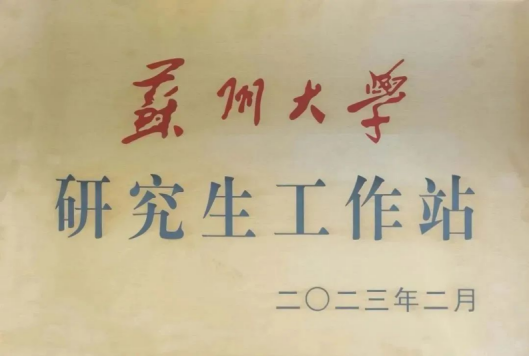 蘇州大學
研究生工作站
二〇二三年二月